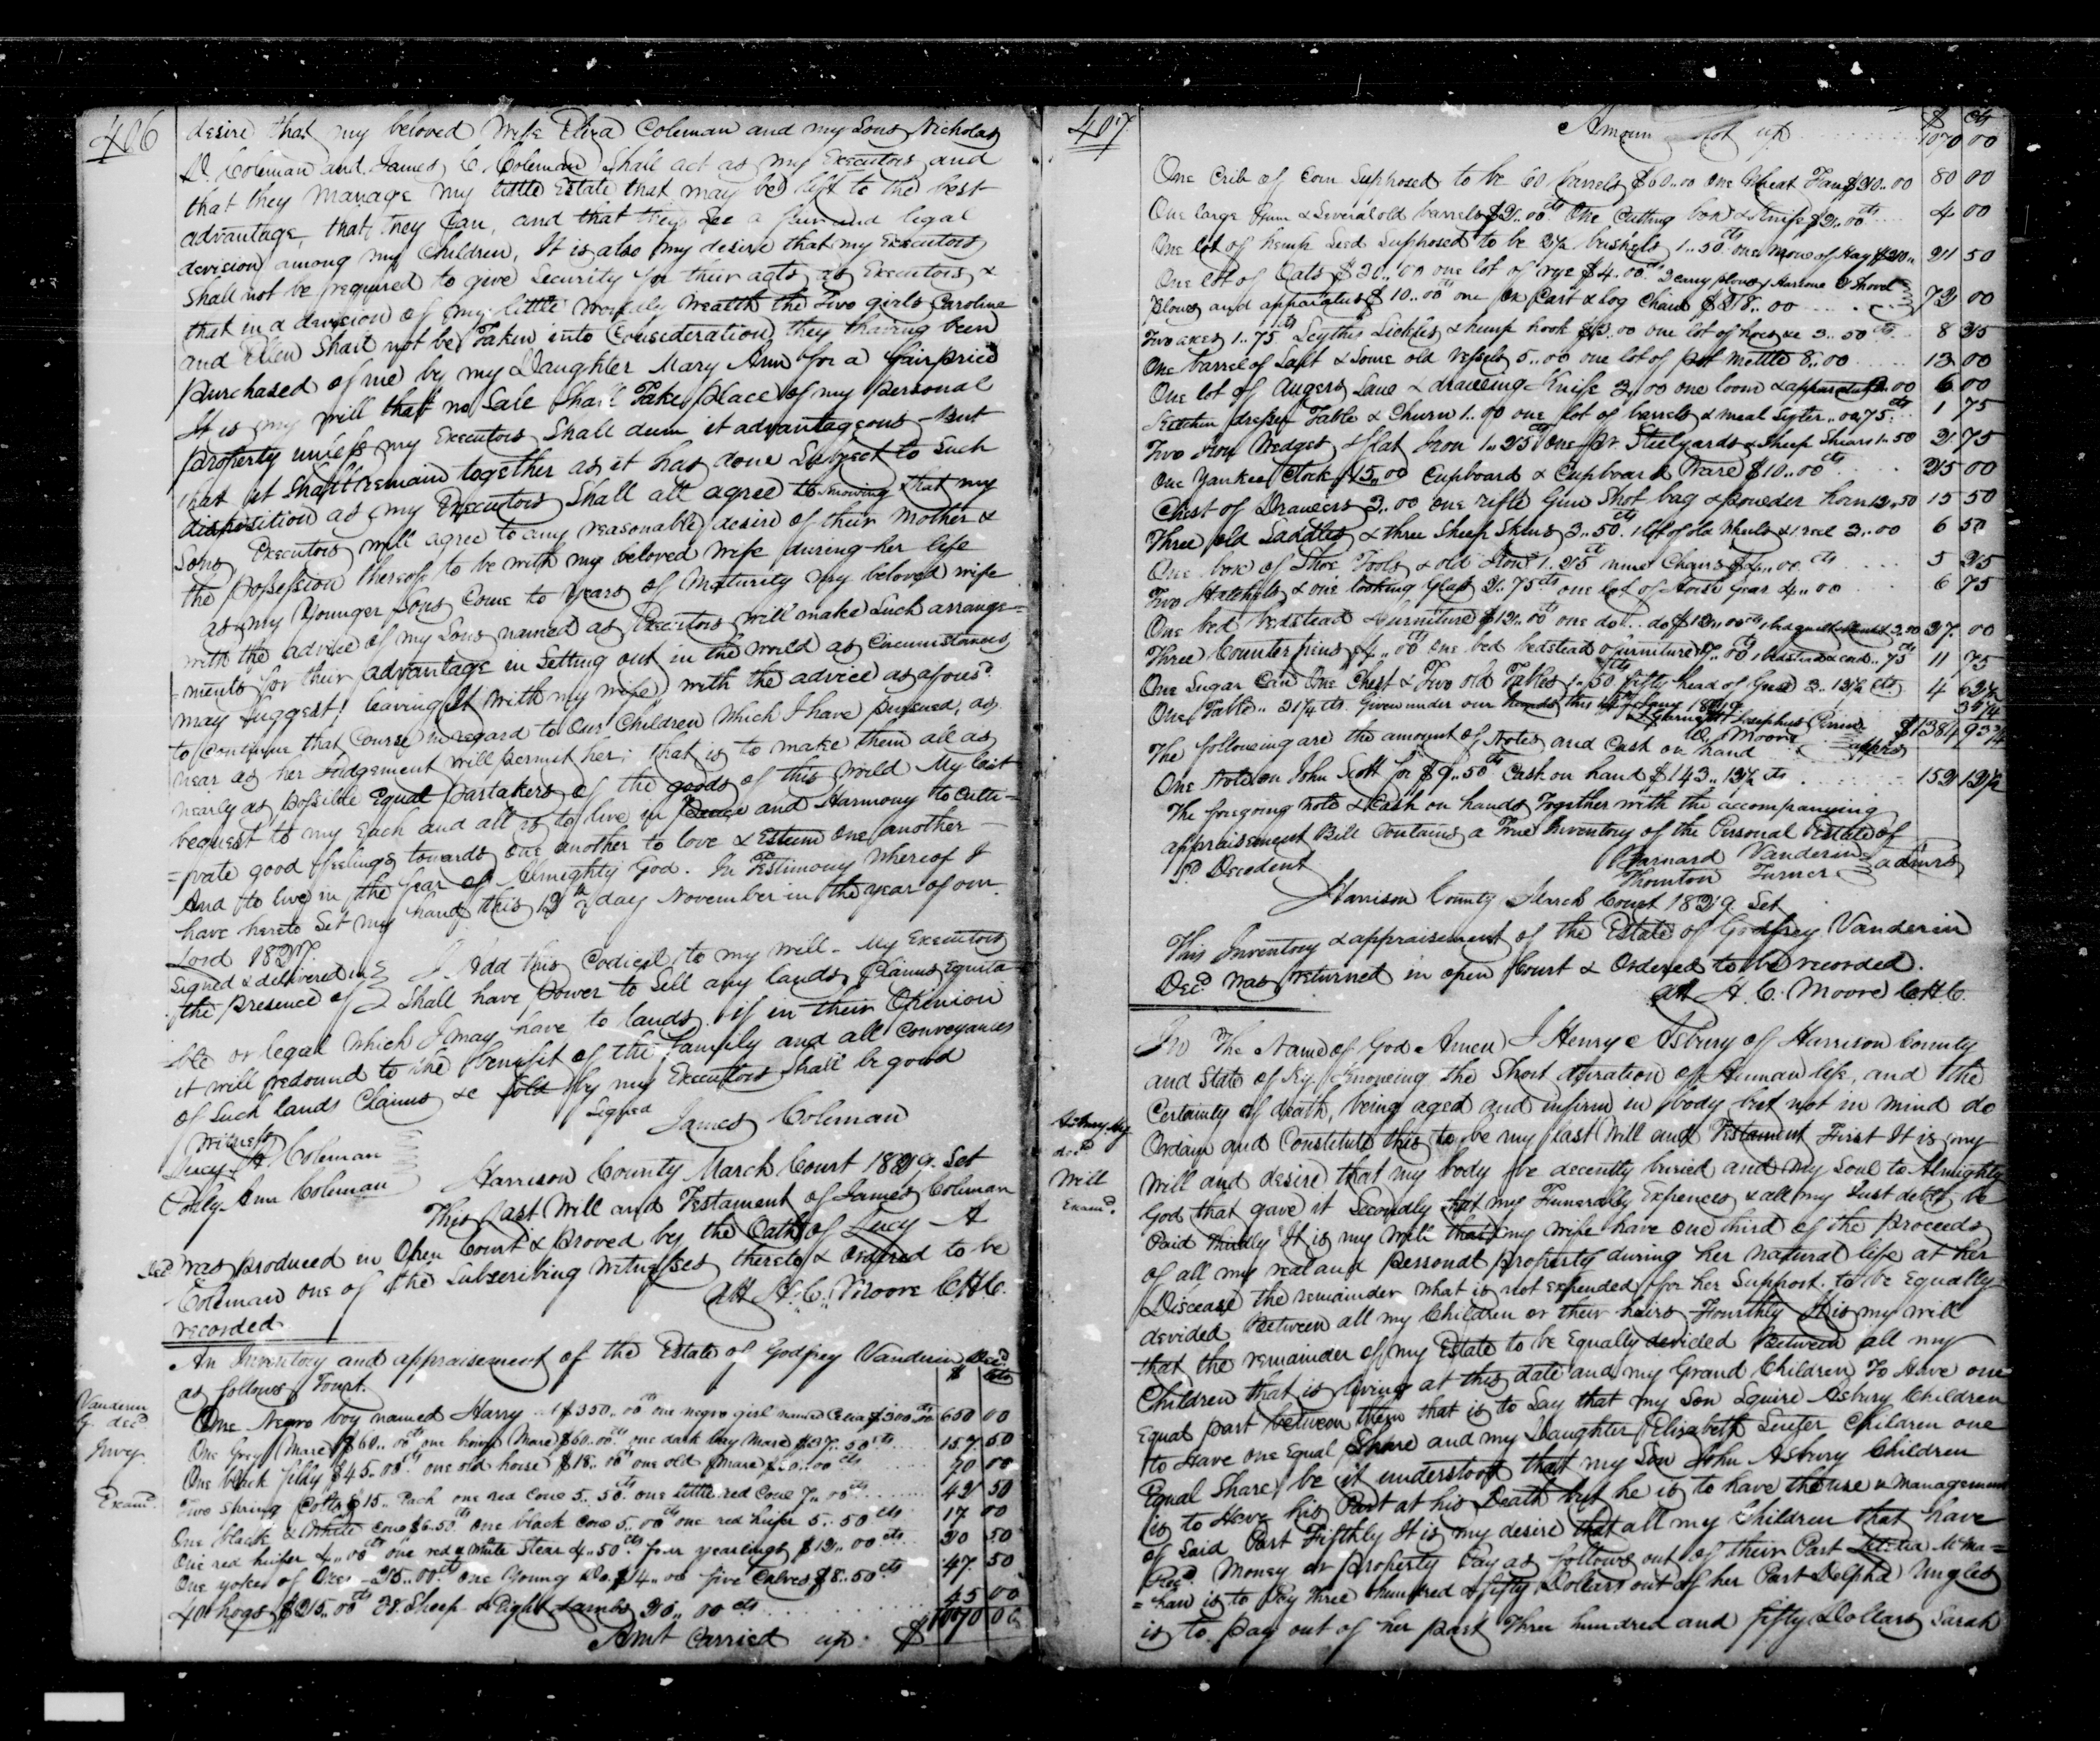 406
desire that my beloved Wife Eliza Coleman and my Sons Nicholas
D. Coleman and James C. Coleman Shall act as my Executors and
that they manage my little Estate that may be left to the best
advantage, that they Can, and that they See a fair and legal
devision among my Children, It is also my desire that my Executors
Shall not be required to give Security for their acts as Executors &
that in a devision of my little Worldly Wealth the Two girls Caroline
and Ellen Shall not be Taken into Consideration they having been
purchased of me by my Daughter Mary Ann for a fair price
It is my will that no Sale Shall Take place of my personal
property unless my Executors Shall deem it advantageous but
that it Shall remain together as it has done Subject to Such
disposition as my Executors Shall all agree to knowing that my
Sons, Executors will agree to any reasonable desire of their mother &
the possession thereof to be with my beloved wife during her life
as my Younger Sons Come to Years of Maturity my beloved wife
with the advice of my Sons named as Executors will make Such arrange=
=ments for their advantage in Setting out in the world as Circumstances
may Suggest; leaving It with my wife, with the advice as afoursd.
to Continue that Course in regard to Our Children which I have pursued, as
near as her Judgement will permit her; that is to make them all as
nearly as possible Equal partakers of the goods of this world My last
bequest to my Each and all is to live in Peace and Harmony to Culti=
=vate good feelings towards one another to love & Esteem one another
And to live in the fear of Almighty God. In Testimony Whereof I
have hereto Set my hand this 12th day November in the year of our
Lord 1827.
Signed & delivered in
the presence of
I Add this Codicil to my will - My Executors
Shall have power to Sell any lands, Claims Equita
ble or legal which I may have to lands if in their Opinion
it will redound to the benefit of the family and all Conveyances
of Such lands Claims &c Sold by my Executors Shall be good
Signed
James Coleman
Witness
Lucy A Coleman
Polly Ann Coleman
Harrison County March Court 1829. Set
This Last Will and Testament of James Coleman
Decd was produced in Open Court & proved by the Oath of Lucy A
Coleman one of the Subscribing Witnesses thereto & Ordered to be
recorded
Att H. C. Moore C.H.C.
Vanderin
G. decd
Invey.
Examd.
An Inventory and appraisement of the Estate of Godfrey Vanderin Decd
as follows Towit.
$ cts
One Negro boy named Harry $350..00cts one negro girl named Celia $300.00 650 00
One Grey Mare $60..00cts one bay Mare $60.00cts one dark bay Mare $37..50cts 157 50
One black filly $45..00cts one old horse $18..00cts one old Mare 70 00
Two Spring Colts $15.. Each one red Cow 5..50cts one little red Cow 7..00cts 42 50
One black & White cow $6.50cts one black Cow 5..00cts one red heifer 5..50cts 17 00
One red heifer 4..00cts one red & White Stear 4..50cts four yearlings $12..00cts 20 50
One yoke of Oxen 25..00cts one Young do. $14..00 five Calves $8..50cts 47 50
40 hogs $25..00cts Sheep & Eight Lambs 20..00cts 45 00
Amt Carried up $1070 00
407
$ cts
Amoun ot up 1070 00
One Crib of Corn Supposed to be 60 barrels $60..00 one Wheat Fan $20..00 80 00
One large Gum & Several old barrels $2..00cts One Cutting box & Knife $2..00cts 4 00
One lot of hemp Seed Supposed to be 2½ bushels 1..50cts one Mow of Hay $20.. 21 50
One lot of Oats $20..00 one lot of rye $4..00cts 2 Cary plows, Harrow & Shovel
Plows and apparatus $10..00cts one Ox Cart & Log Chain $28..00 72 00
Two axes 1..75cts Scythe Sickles & hemp hook $3.00 one lot of hoes &c 3..50cts 8 25
One barrel of Salt & Some old Vessels 5..00 one lot of pot mettle 8..00 13 00
One lot of Augers, Saw & drawing Knife 3..00 one loom & apparatus 3..00 6 00
Kitchen dresser Table & Churn 1..00 one lot of barrels & meal Sifter..0..75cts 1 75
Two Iron Wedges & flat Iron 1..25cts One Pr Steelyards & Sheep Shears 1..50 2 75
One Yankee Clock $15..00 Cupboard & Cupboard Ware $10..00cts 25 00
Chest of Drawers 3..00 one rifle Gun Shot bag & powder horn 12..50 15 50
Three old Saddles & three Sheep Skins 3..50cts 1 lot of old Wheels & 1 reel 3..00 6 50
One box of Shoe Tools & old Iron 1..25cts nine Chairs $4..00cts 5 25
Two Hatchels & one looking Glass 2..75cts one lot of Horse Gear 4..00 6 75
One bed bedstead & furniture $12..00cts one do... do $12..00cts 1 bed quilt 3.00 27 00
Three Counterpins $4..00cts One bed bedstead & furniture 7..00cts 1 bedstead & cord..75cts 11 75
One Sugar Can One Chest & Two old Tables 1..50cts fifty head of Geese 3..12½cts 4 62½
One Table..31¼cts. Given under our hands this 1829 31¼
Josephus Perrin
W. Moore
apprs
$1384 93¾
The following are the amount of Notes and Cash on hand
One Note on John Scott for $9..50cts Cash on hand $143..12½cts 152 12½
The foregoing note & Cash on hands Together with the accompanying
appraisement Bill Contains a True Inventory of the Personal Estate of
Sd. Decedent
Barnard Vanderin
Thornton Turner
admrs
Harrison County March Court 1829. Set
This Inventory & appraisement of the Estate of Godfrey Vanderin
Decd. was returned in open Court & Ordered to be recorded.
Att H. C. Moore C.H.C.
Asbury Hy
decd
Will
Examd.
In The Name of God Amen I Henry Asbury of Harrison County
and State of Ky. Knowing the Short duration of Human life, and the
Certainty of death, being aged and infirm in body but not in mind do
Ordain and Constitute this to be my last Will and Testament First It is my
will and desire that my body be decently buried and my Soul to Almighty
God that gave it Secondly that my Funerally Expences & all my Just debts be
Paid thirdly It is my will that my wife have one third of the proceeds
of all my real and personal property during her natural life at her
Disease the remainder what is not expended for her Support. to be Equally
devided Between all my Children or their heirs Fourthly It is my will
that the remainder of my Estate to be Equally devided Between all my
Children that is living at this date and my Grand Children To Have one
Equal part between them that is to Say that my Son Squire Asbury Children
to Have one Equal Share and my Daughter Elizabeth Children one
Equal Share, be it understood that my Son John Asbury Children
is to Have his Part at his Death but he is to have the use & Management
of Said Part Fifthly It is my desire that all my Children that have
Recd. Money or property Pay as follows out of their Part McMa=
=han is to Pay Three hundred & fifty Dollars out of her Part Delpha Ungles
is to pay out of her part Three hundred and fifty Dollars Sarah